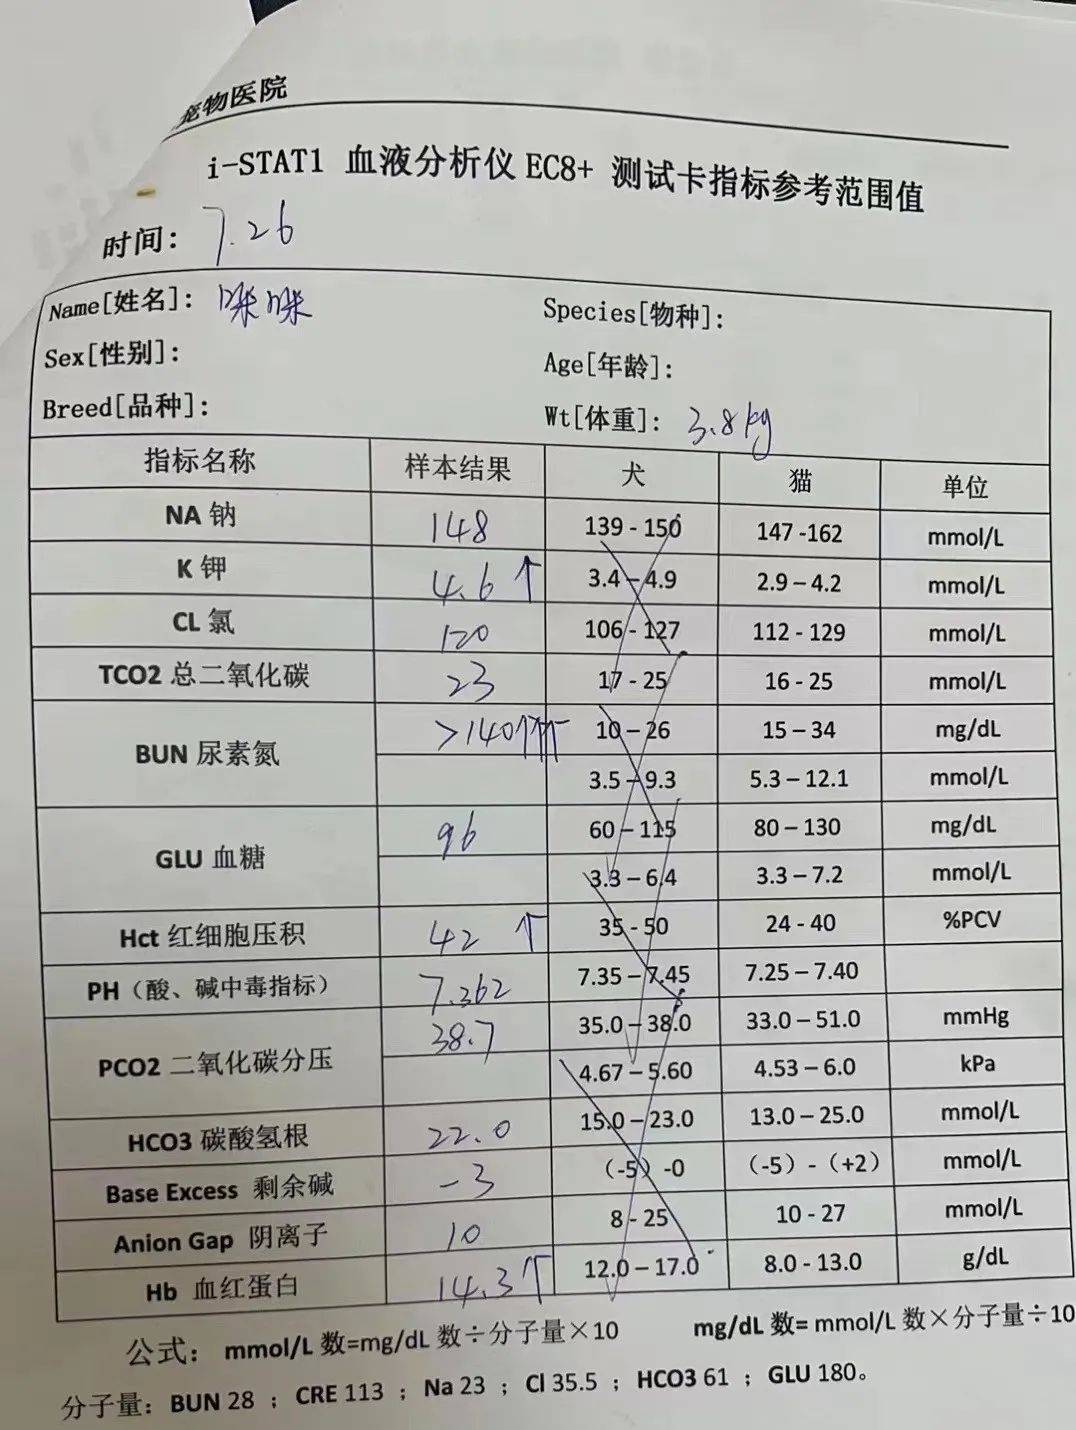 宠物医院
i-STAT1 血液分析仪 EC8+ 测试卡指标参考范围值
时间： 7.26
Name[姓名]： 咪咪 Species[物种]：
Sex[性别]： Age[年龄]：
Breed[品种]： Wt[体重]： 3.8kg
指标名称 样本结果 犬 猫 单位
NA 钠 148 139 - 150 147 -162 mmol/L
K 钾 4.6 ↑ 3.4 – 4.9 2.9 – 4.2 mmol/L
CL 氯 120 106 - 127 112 - 129 mmol/L
TCO2 总二氧化碳 23 17 - 25 16 - 25 mmol/L
BUN 尿素氮 >140↑↑↑ 10 – 26 15 – 34 mg/dL
3.5 – 9.3 5.3 – 12.1 mmol/L
GLU 血糖 96 60 – 115 80 – 130 mg/dL
3.3 – 6.4 3.3 – 7.2 mmol/L
Hct 红细胞压积 42 ↑ 35 - 50 24 - 40 %PCV
PH（酸、碱中毒指标） 7.362 7.35 – 7.45 7.25 – 7.40
PCO2 二氧化碳分压 38.7 35.0 – 38.0 33.0 – 51.0 mmHg
4.67 – 5.60 4.53 – 6.0 kPa
HCO3 碳酸氢根 22.0 15.0 – 23.0 13.0 – 25.0 mmol/L
Base Excess 剩余碱 -3 （-5）-0 （-5）-（+2） mmol/L
Anion Gap 阴离子 10 8 - 25 10 - 27 mmol/L
Hb 血红蛋白 14.3↑ 12.0 – 17.0 8.0 - 13.0 g/dL
公式： mmol/L 数=mg/dL 数÷分子量×10 mg/dL 数= mmol/L 数×分子量÷10
分子量：BUN 28 ；CRE 113 ；Na 23 ；Cl 35.5 ；HCO3 61 ；GLU 180。